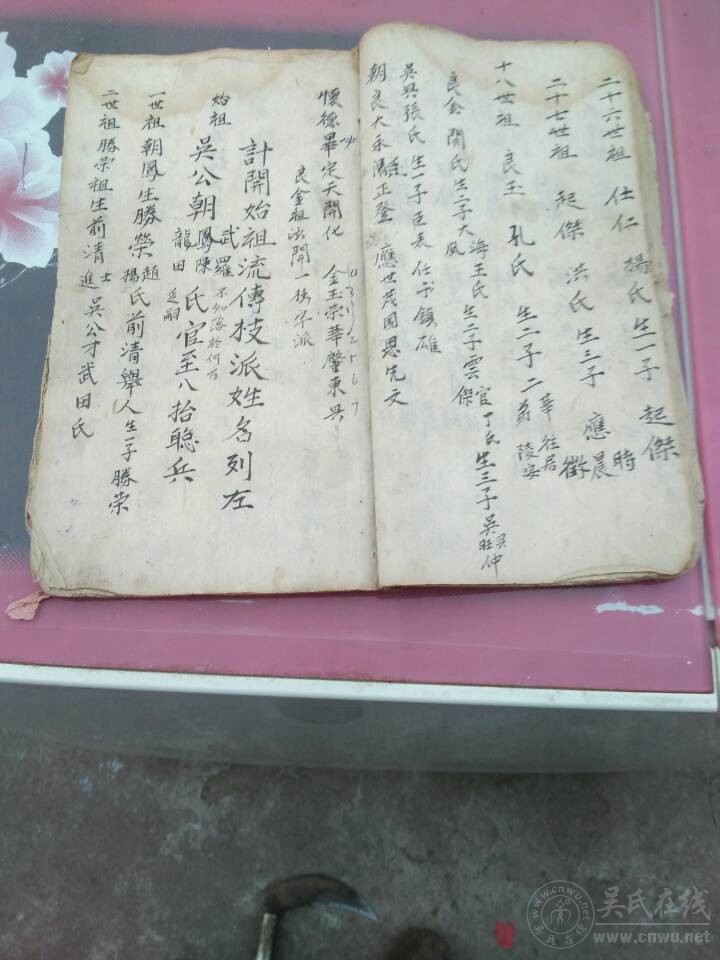 二十六世祖 仕仁 楊氏 生一子 起傑
二十七世祖 起傑 洪氏 生三子 應 時 晨 徵
十八世祖 良玉 孔氏 生二子 二 華 翁 往居 陵安
良金 閆氏 生二子 大 海 王氏 生二子 雲 官 傑 丁氏 生三子 吳 旺 仲
吳興 張氏 生一子 臣表 仕 鎮雄
朝良大永 正登 應世茂國恩先文
懷德畢定天開化 金玉榮華肇東興
1 2 5 6 7
良金祖 開一枝字派
計開始祖流傳技派姓名列左
始祖 吳公朝 武 鳳 龍 羅 陳 田 氏 官至八拾聰兵
不知落於何方
乏嗣
一世祖朝鳳生勝榮 趙 楊 氏 前清舉人生一子勝榮
二世祖勝榮祖生前清 進 士 吳公才武田氏
吳氏在线
www.cnwu.net